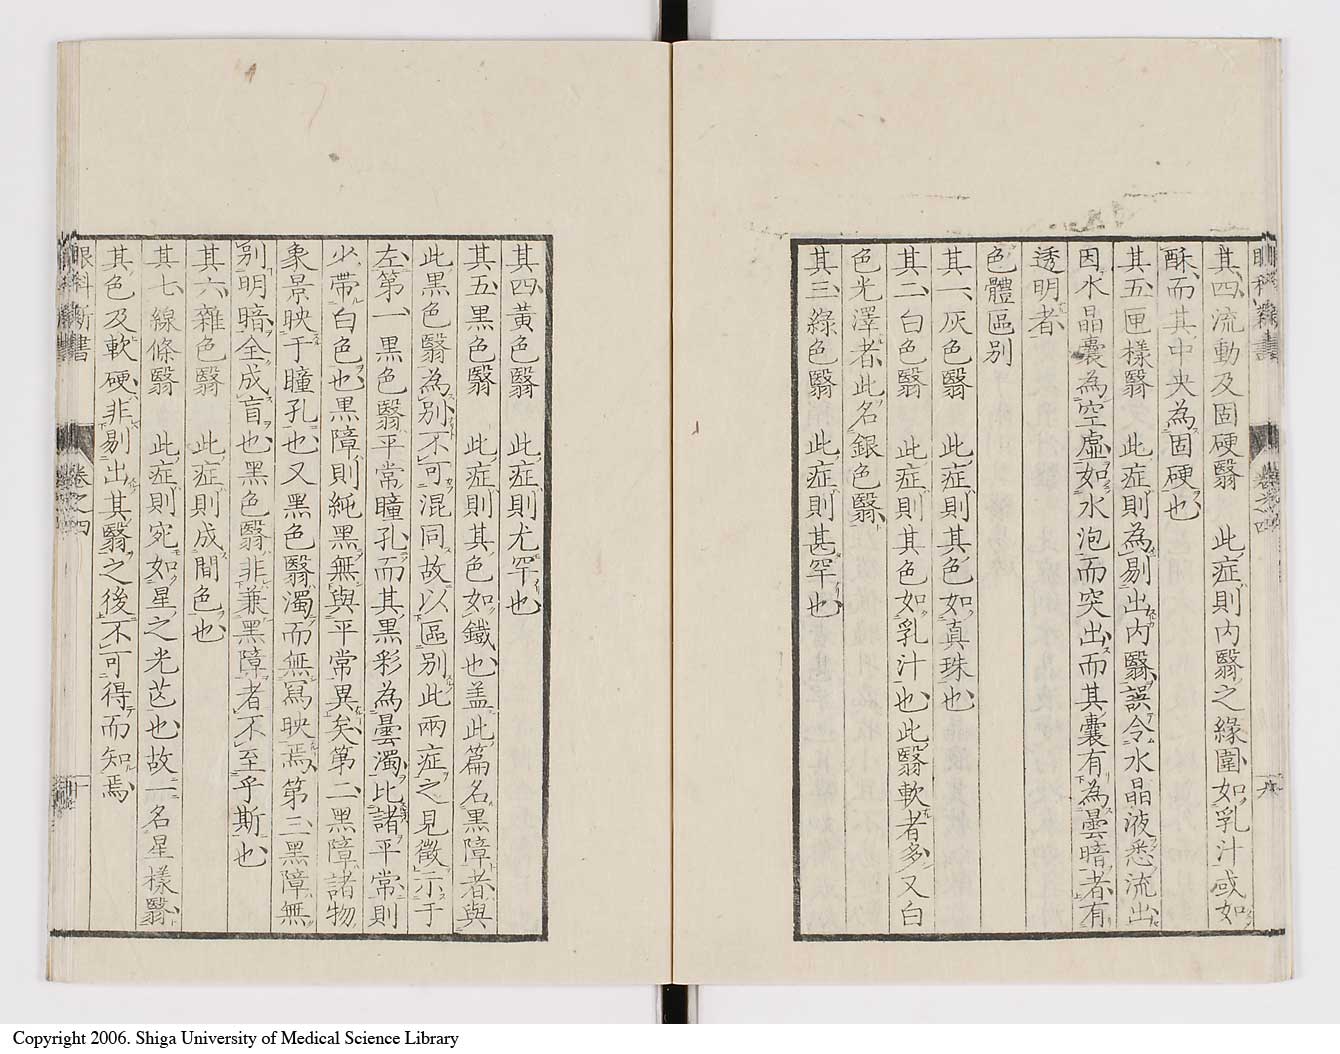 其四流動及固硬翳 此症則内翳之緣圍如乳汁或如
酥而其中央為固硬也
其五匣樣翳 此症則為剔出内翳誤令水晶液悉流出
因水晶囊為空虛如水泡而突出而其囊有為曇暗者有
透明者
色體區別
其一灰色翳 此症則其色如真珠也
其二白色翳 此症則其色如乳汁也此翳軟者多又白
色光澤者此名銀色翳
其三綠色翳 此症則甚罕也
其四黃色翳 此症則尤罕也
其五黑色翳 此症則其色如鐵也盖此篇名黑障者與
此黑色翳為別不可混同故以區別此兩症之見徵示于
左第一黑色翳平常瞳孔而其黑彩為曇濁比諸平常則
少帶白色也黑障則純黑無與平常異矣第二黑障諸物
象景映于瞳孔也又黑色翳濁而無寫映焉第三黑障無
別明暗全成盲也黑色翳非兼黑障者不至乎斯也
其六雜色翳 此症則成間色也
其七線條翳 此症則宛如星之光芒也故一名星樣翳
其色及軟硬非剔出其翳之後不可得而知焉
眼科新書 卷之四
Copyright 2006. Shiga University of Medical Science Library